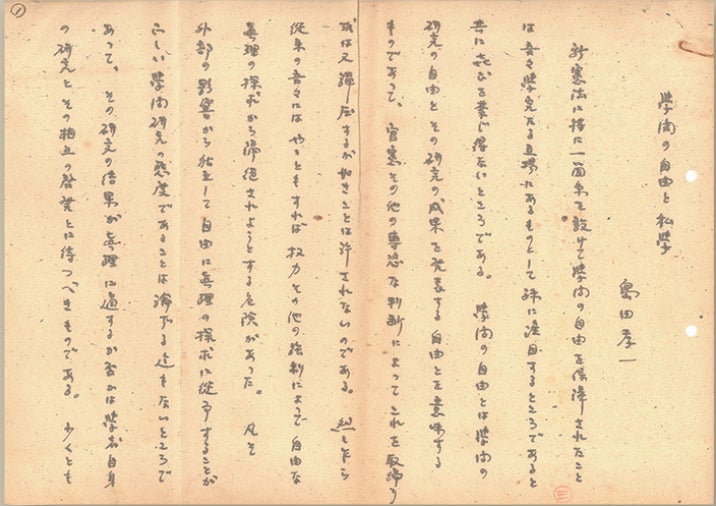 ①
学問の自由と私学
島田孝一
新憲法に特に一箇条を設けて学問の自由を保障されたこと
は吾々学究たる立場にあるものとして殊に注目するところであると
共に喜びを禁じ得ないところである。 学問の自由とは学問の
研究の自由とその研究の成果を発表する自由とを意味する
ものであって、官憲その他の専恣な判断によってこれを取締り
或は又弾圧するが如きことは許されないのである。 然しながら
従来の吾々にはやゝともすれば权力その他の強制によって自由な
眞理の探求から阻絶されようとする危険があった。 凡そ
外部の影響から独立して自由に眞理の探求に從事することが
正しい学問研究の態度であることは論ずる迄もないところで
あって、その研究の結果が眞理に適するか否かは学者自身
の研究とその相互の啓発とに待つべきものである。 少くとも
三